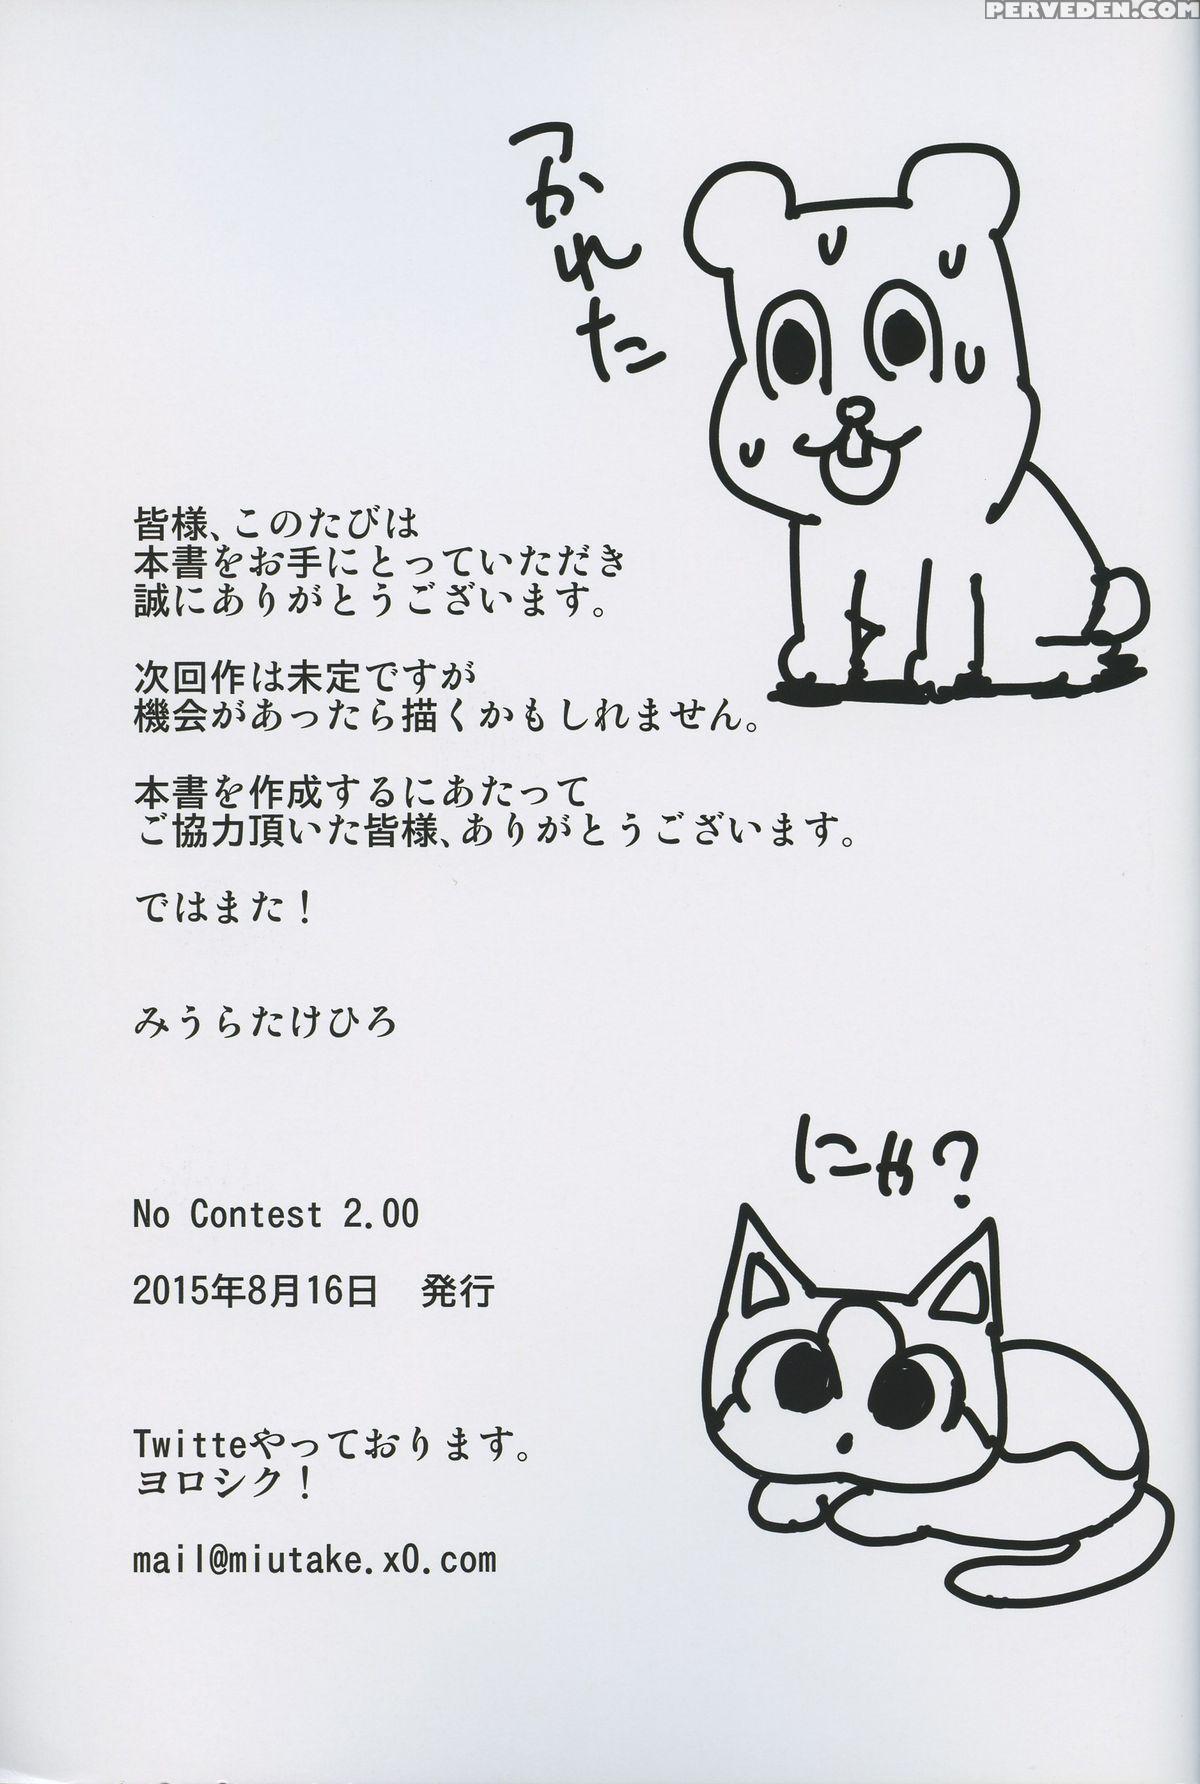 PERVEDEN.COM
つかれた
皆様、このたびは
本書をお手にとっていただき
誠にありがとうございます。
次回作は未定ですが
機会があったら描くかもしれません。
本書を作成するにあたって
ご協力頂いた皆様、ありがとうございます。
ではまた！
みうらたけひろ
にゃ？
No Contest 2.00
2015年8月16日　発行
Twitteやっております。
ヨロシク！
mail@miutake.x0.com